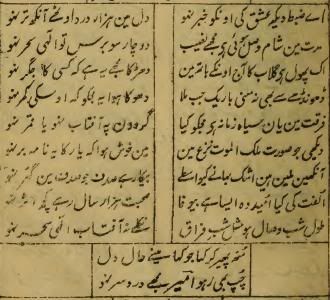 اے ضبط دیکھ عشق کی اونکو خبر نہو
دل مین ہزار درد اوٹھے آنکھ تر نہو
مدت مین شام وصل ہوئی ہے مجھے نصیب
دو چار سو برس تو الٰہی سحر نہو
اک پھول ہے گلاب کا آج اونکے ہاتھ مین
دھڑکا مجھے یہ ہے کہ کسی کا جگر نہو
ڈھونڈے سے بھی نہ معنی باریک جب ملا
دھوکا ہوا یہ مجھکو کہ اوسکی کمر نہو
فرقت مین یان سیاہ زمانہ ہے مجھکو کیا
گردون پہ آفتاب نہو یا قمر نہو
دیکھی جو صورت ملک الموت نزع مین
مین خوش ہوا کہ یار کا یہ نامہ بر نہو
آنکھین ملین ہین اشک بہانے کیواسطے
بیکار ہے صدف جو صدف مین گہر نہو
الفت کی کیا امید وہ ایسا ہے بیوفا
صحبت ہزار سال رہے کچھ اثر نہو
طول شب وصال ہو مثل شب فراق
نکلے نہ آفتاب الٰہی سحر نہو
منہ پھیر کر کہا جو کہا مینے حال دل
چپ بھی رہو امیر مجھے درد سر نہو